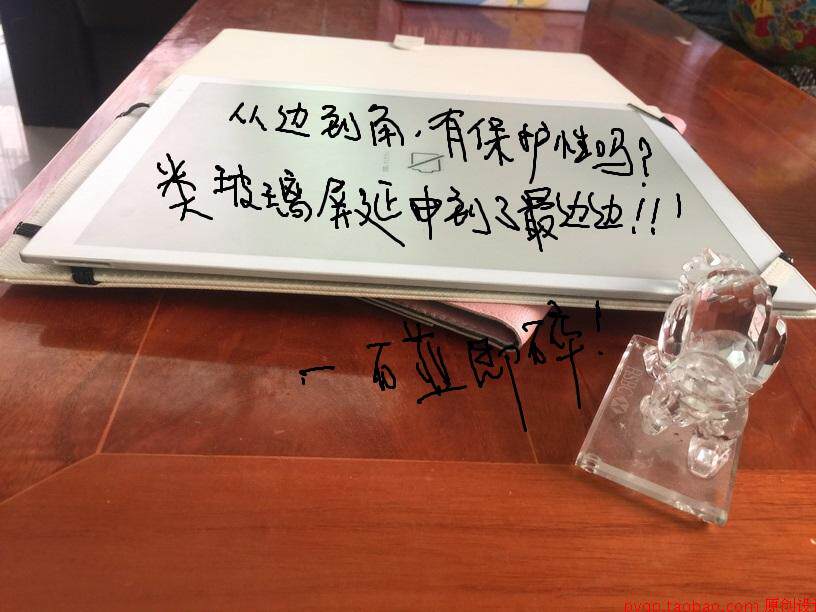 从边到角,有保护性吗?
类玻璃屏延申到了最边边!!!
一碰即碎!
HSBC
pyqn.taobao.com 原创设